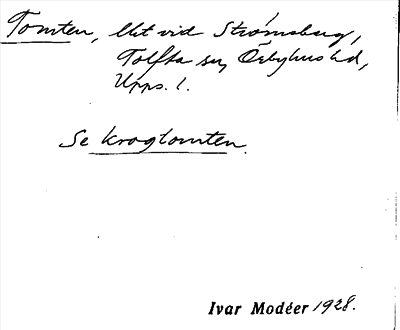 Tomten, lht vid Strömsberg,
Tolfta sn, Örbyhus hd,
Upps. l.
Se krogtomten.
Ivar Modéer 1928.